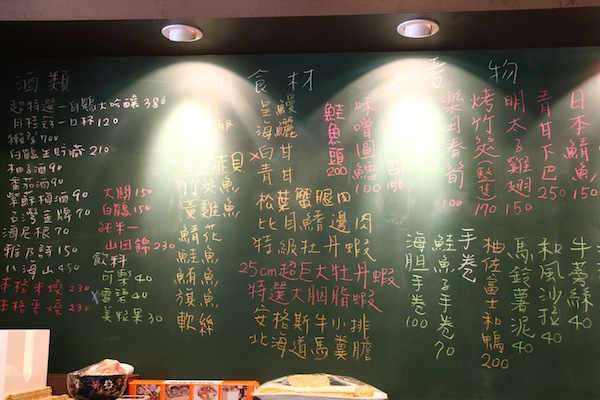 酒類
超特選一白鶴大吟釀 380
月桂冠一口杯 120
獺祭 700
白鶴生貯藏 210
柚子酒 90
蕃茄酒 90
紫蘇梅酒 90
台灣金牌 70
海尼根 70
雅乃詩 150
八海山 450
米格米燒 230
米格麥燒 230
大關 150
白鶴 150
純米一
山田錦 230
飲料
可樂 40
雪碧 40
美粒果 30
食材
竹筴魚
黃雞魚
鯖花
鮭魚
鮪魚
旗魚
軟絲
星鰻
海鱺
甘
青甘
松葉蟹腿肉
比目鯖邊肉
特級牡丹蝦
25cm超巨大牡丹蝦
特選大胭脂蝦
安格斯牛小排
北海道馬糞膽
烤物
日本鯖魚 150
青甘下巴 250
明太子雞翅 150
烤竹筴(整隻) 170
味噌圓鱈 100
鮭魚頭 200
牛蒡絲 40
和風沙拉 40
馬鈴薯泥 40
柚佐富士和鴨 200
手卷
鮭魚子手卷 70
海胆手卷 100